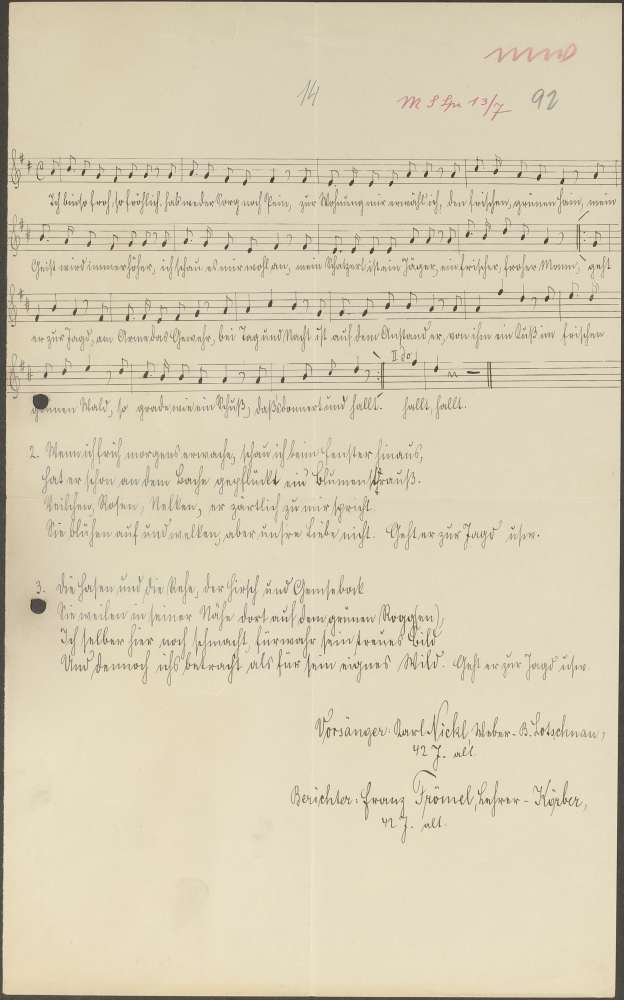 14
92
Ich bin so froh, so fröhlich, hab weder Sorg noch Pein, zur Wohnung mir erwählt ich, den frischen, grünen Hain, mein
Geist wird immer höher, ich schau es mir wohl an, mein Schatzerl ist ein Jäger, ein frischer, froher Mann, geht
er zur Jagd, am Arme das Gewehr, bei Tag und Nacht ist auf dem Anstand er, von ihm ein Kuß im frischen
II do
grünen Wald, so grade wie ein Schuß, daß's donnert und hallt. hallt, hallt.
2. Wenn ich früh morgens erwache, schau ich beim Fenster hinaus,
Hat er schon an dem Bache gepflückt ein Blumenstrauß.
Veilchen, Rosen, Nelken, er zärtlich zu mir spricht
Sie blühen auf und welken, aber unsre Liebe nicht. Geht er zur Jagd usw.
3. Die Hasen und die Rehe, der Hirsch und Gemsebock
Sie weilen in seiner Nähe dort auf dem grünen Rogg(en),
Ich selber hier noch schmacht, fürwahr sein treues Bild
Und dennoch ichs betracht als für sein eignes Wild. Geht er zur Jagd usw.
Vorsänger: Karl Nickl, Weber - B. Lotschnau,
42 J. alt.
Berichter: Franz Frömel, Lehrer - Körber,
42 J. alt.